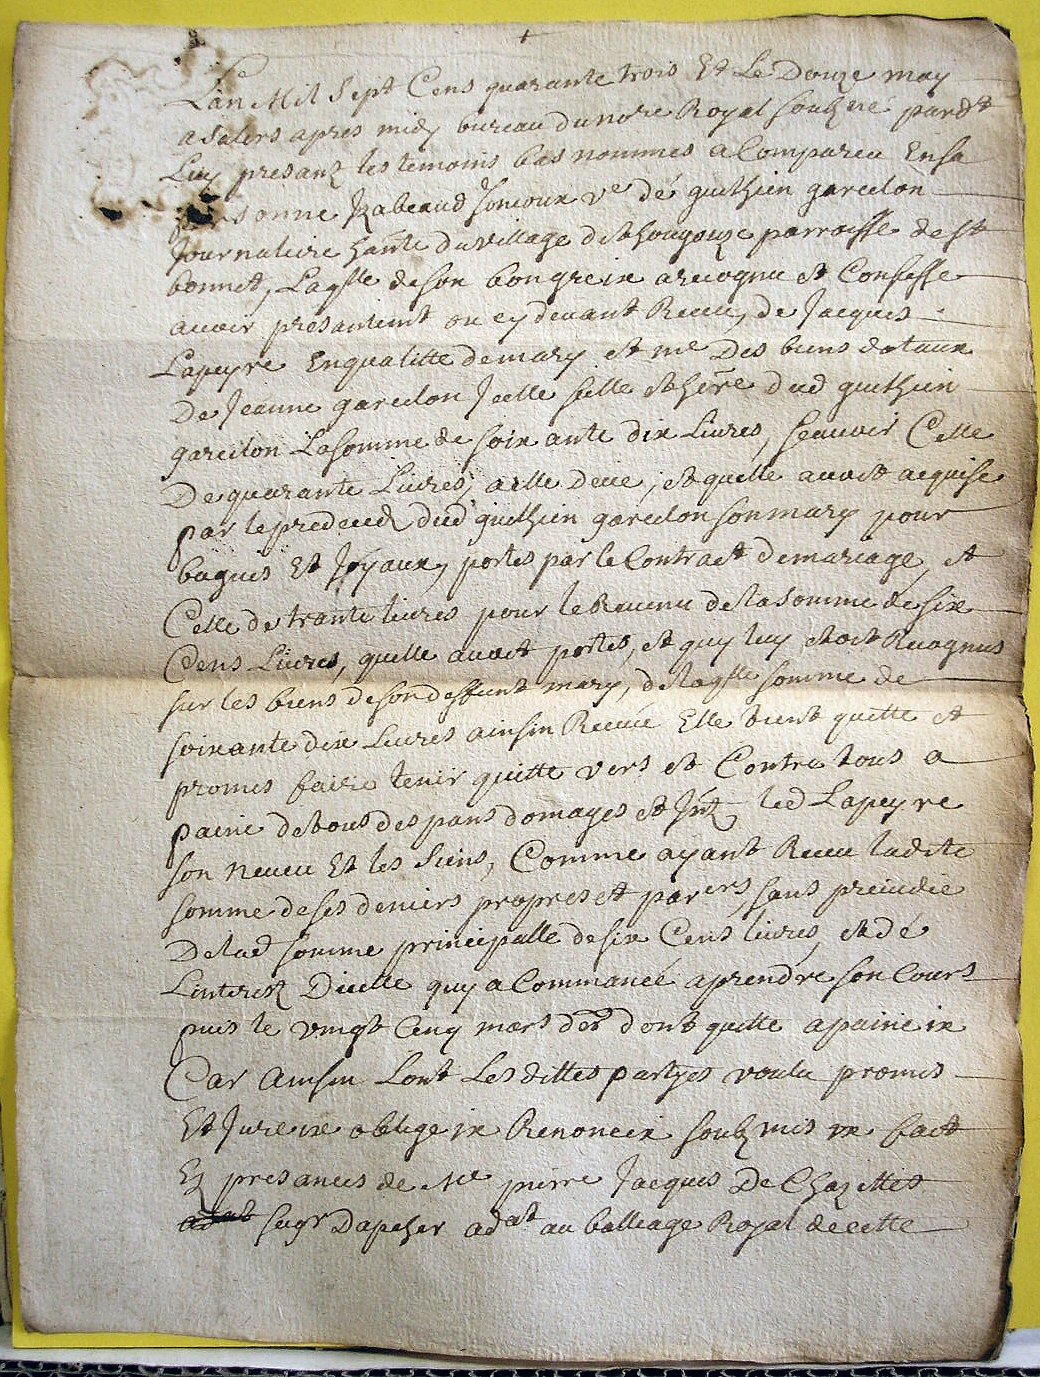 Lan Mil Sept Cens quarante trois Et Le Douze may
a Salers apres midy bureau du nore Royal soubne pardt
Luy presanz les temoins bas nommes a Compareu En sa
sonne Izabeaud ve dé guithien garcelon
Journaliere hante du village de parroisse de st
bonnet, Laqlle de son bon gre ix a recognu et Confesse
avoir presantemt ou cy devant Receu, de Jacques
Lapeyre En qualitte de mary et me Des biens dotaux
De Jeanne garcelon Jcelle fille et herre dud guithien
garcelon La somme de soixante dix Livres, scavoir Celle
De quarante Livres, a elle deue, et quelle avoit acquise
par le predeced dud guithien garcelon son mary pour
bagues Et Joyaux, portes par le Contract de mariage, et
Celle de trante livres pour le Revenu de la somme de six
Cens Livres, quelle avoit portes, et quy luy etoit Recognus
sur les biens de son deffunt mary, de laqlle somme de
soixante dix Livres ainsin Receue Elle tient quitte et
promes faire tenir quitte vers et Contre tous a
paine de tous despans domages et Jnz led Lapeyre
son neveu Et les Siens, Comme ayant Receu ladite
somme de ses deniers propres et par ers, sans preiudice
De lad somme principalle de six Cens livres, et dé
Linterez Dicelle quy a Commancé a prendre son Cours
puis le vingt Cinq mars der dont quitte a paine ix
Car Ainsin Lont Les dittes partyes voulu promis
Et Jure ix oblige ix Renonce ix soubzmis ix fait
Ez presances de Me pierre Jacques De Chazettes
segr Dapcher adat au balleage Royal de cette